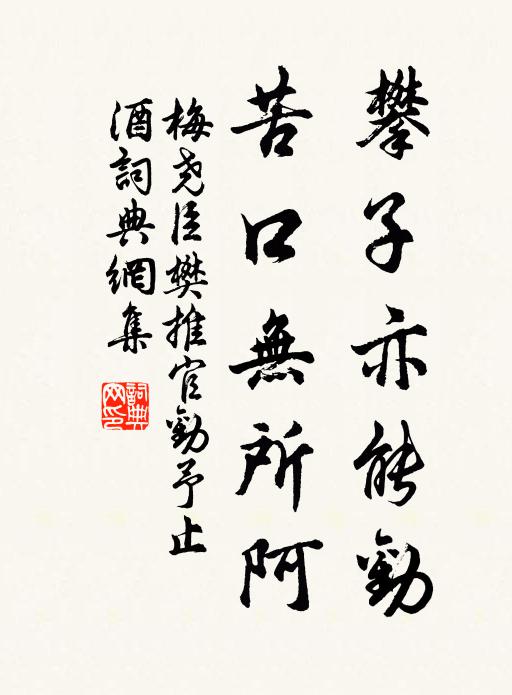 攀子亦能勸
苦口無所阿
梅尧臣樊推官勸予止
酒詞典網集
詞典
网印